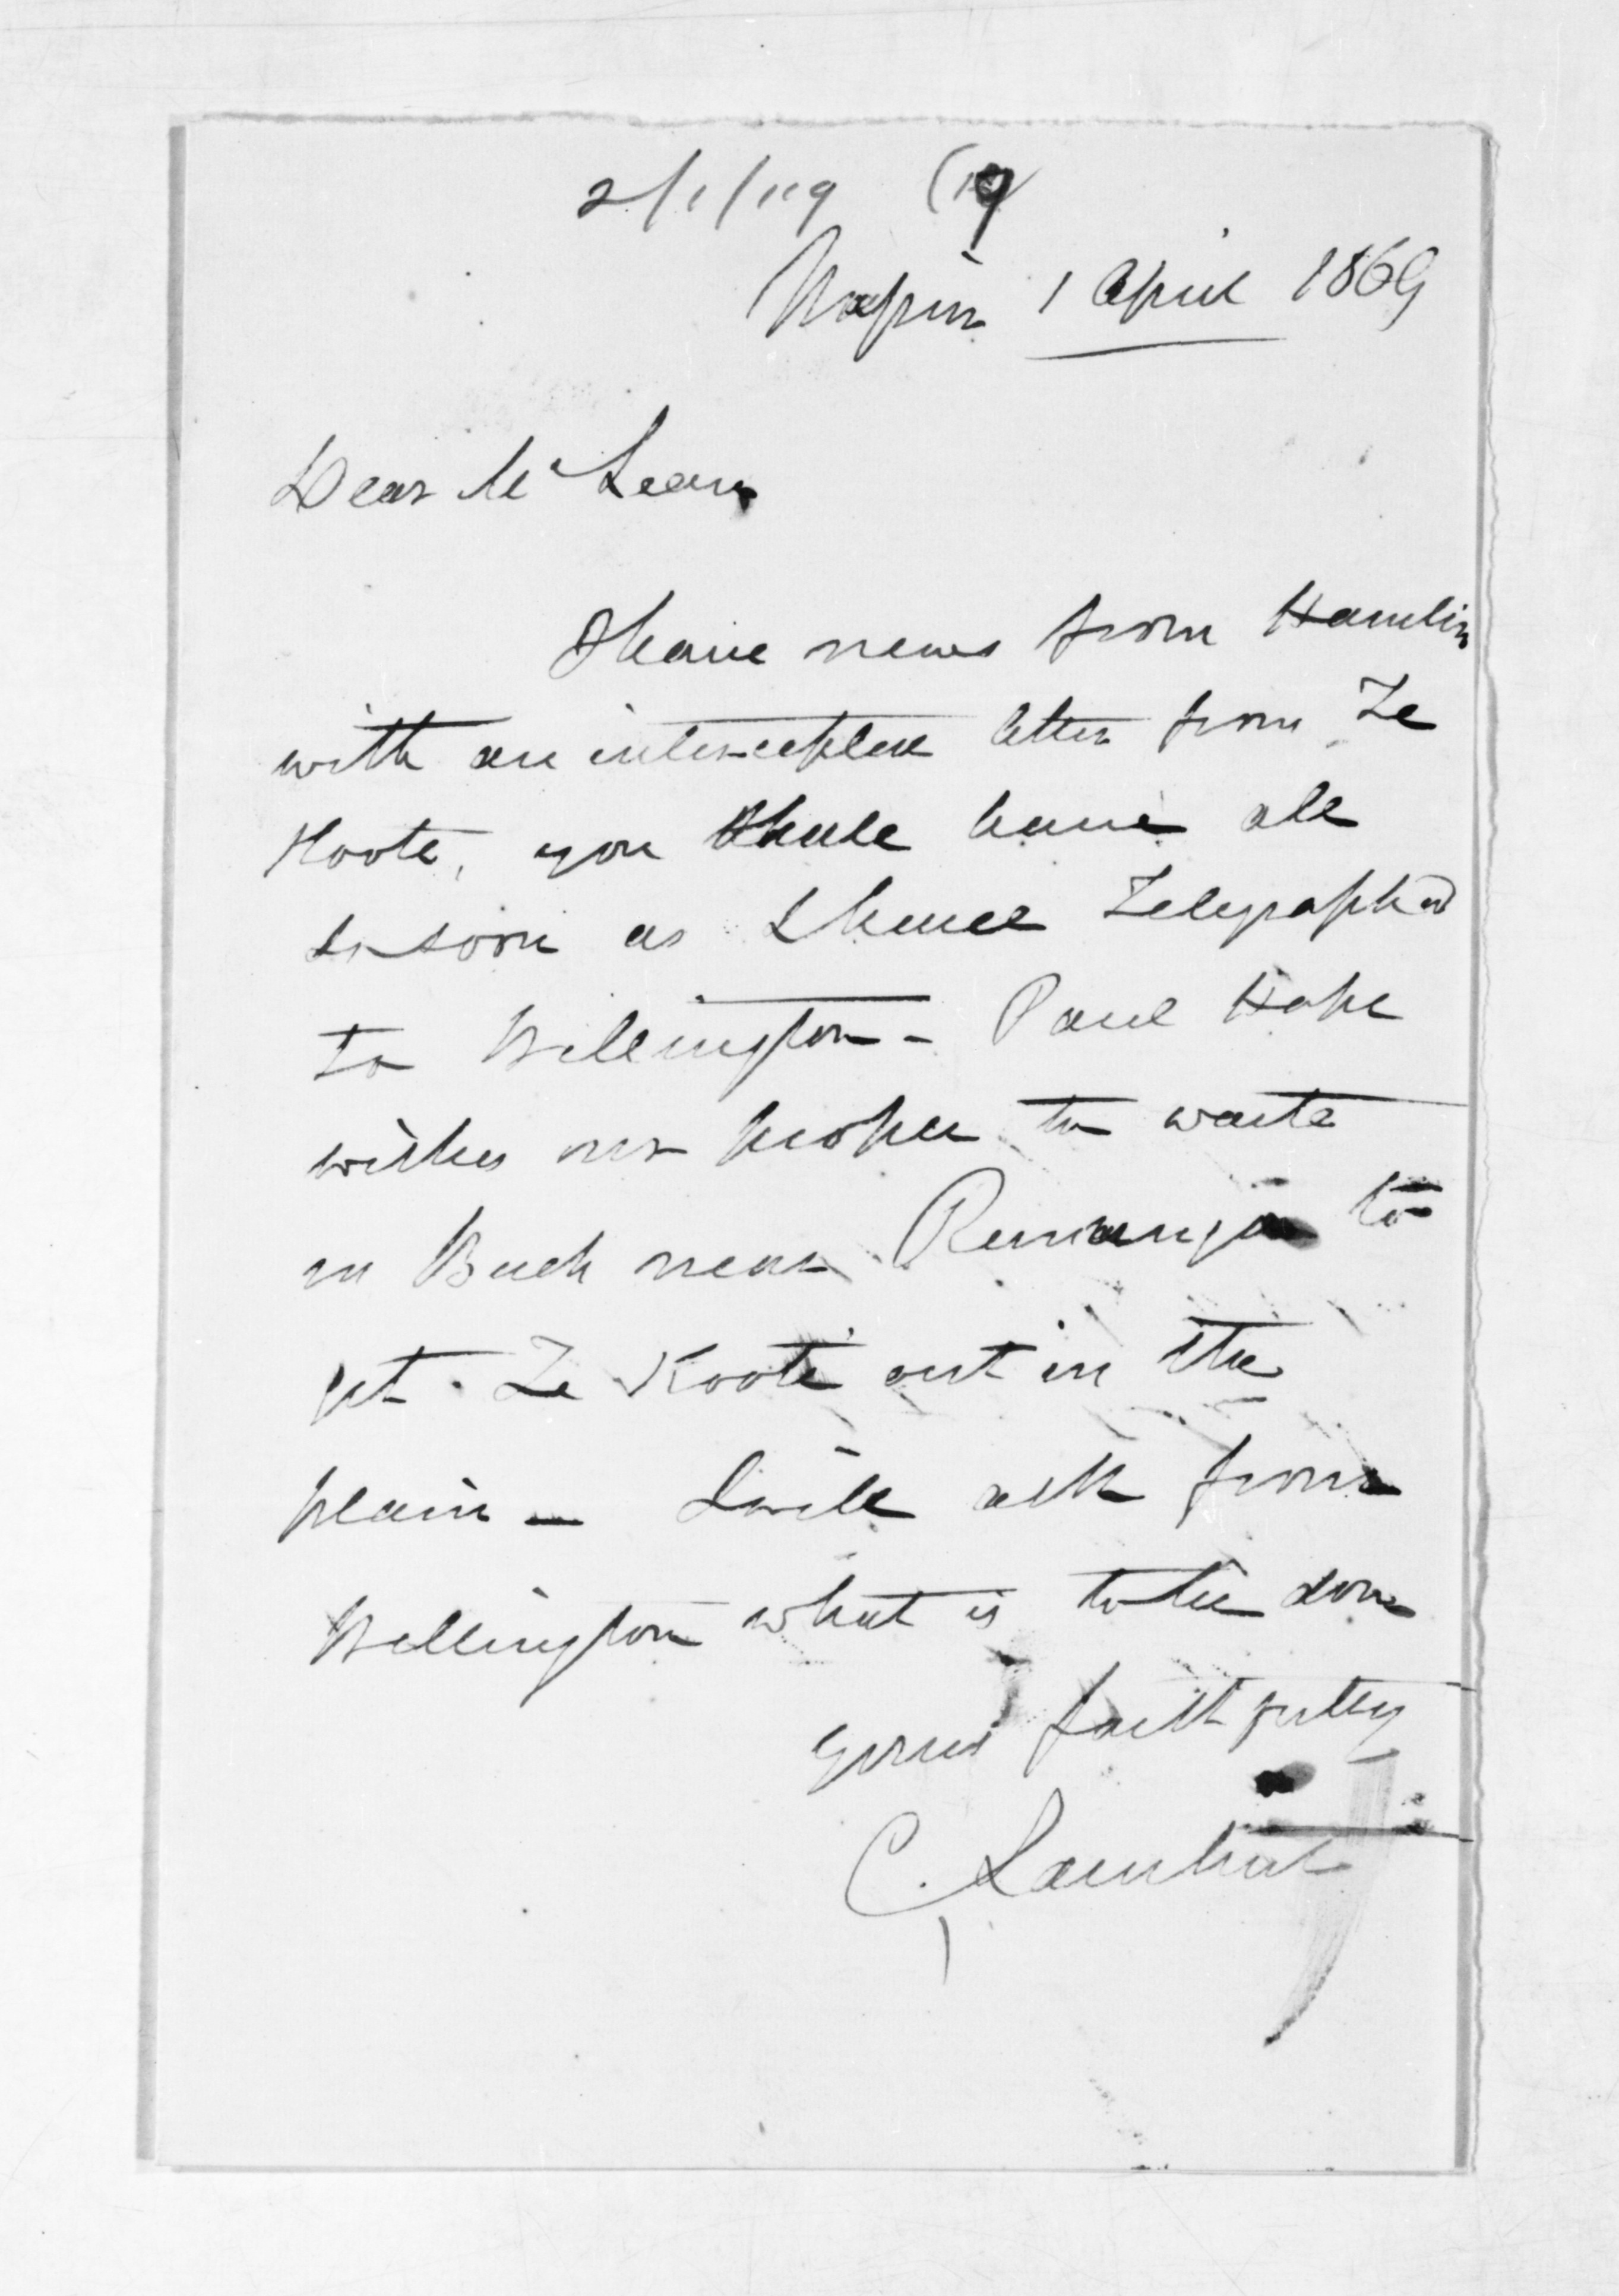 2/1/119 (19
Napier 1 April 1869
Dear McLean
I have news from Hamlin
with an intercepted letter from Te
Koote, you shall have all
so soon as I have Telegraphed
to Wellington - Paul Hape
wishes our people to waite
in Bush near Ruwanga to
get Te Koote out in the
plain - I will ask from
Wellington what is to be done
yours faithfully
C. Lambert